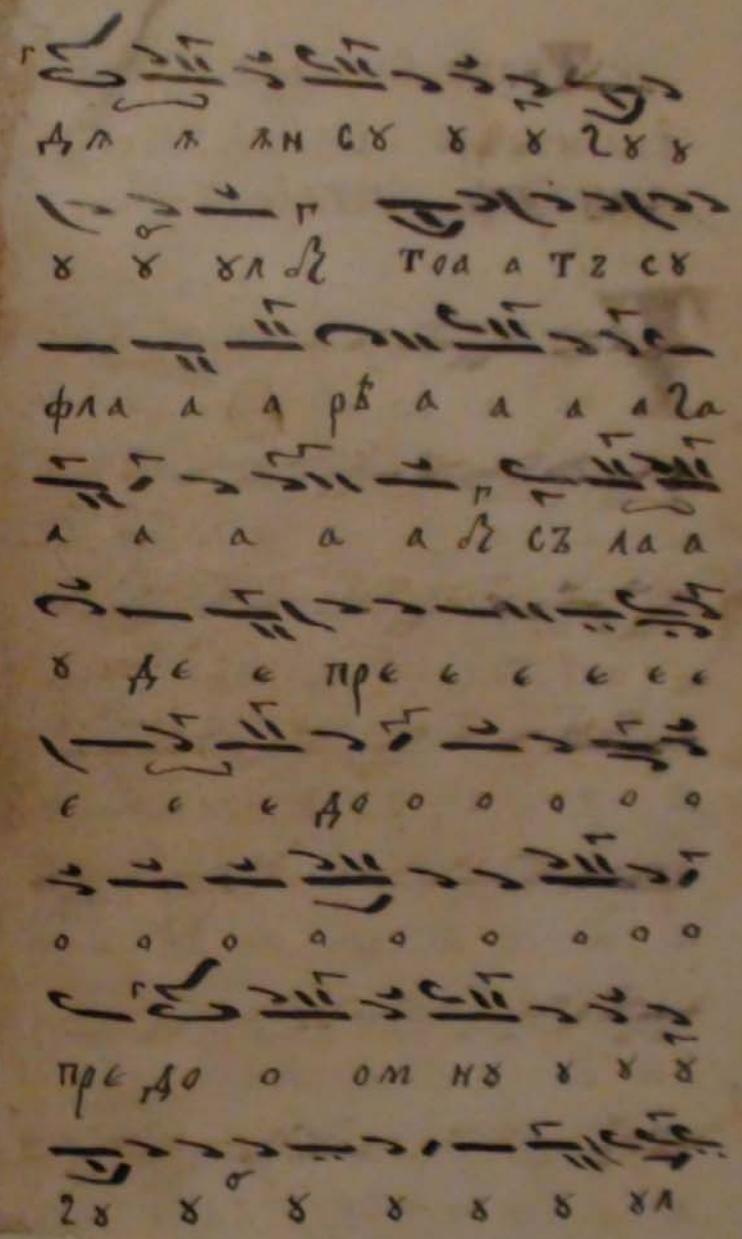 дѫ ѫ ѫн сꙋ ꙋ ꙋ гꙋ ꙋ
ꙋ ꙋ ꙋл тоа а тъ сꙋ
фла а а рѣ а а а а га
а а а а а съ ла а
ꙋ де е пре е е е е е
е е е до о о о о о
о о о о о о о о о
пре до о ом нꙋ ꙋ ꙋ ꙋ
гꙋ ꙋ ꙋ ꙋ ꙋ ꙋ ꙋл